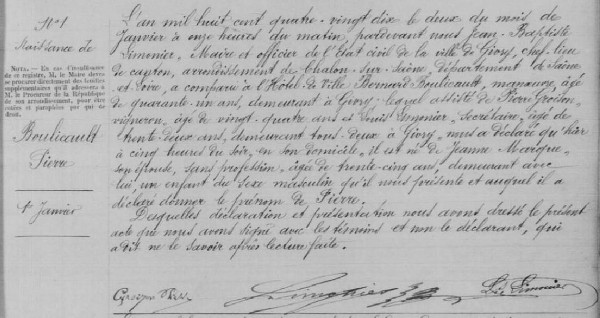 N° 1
Naissance de
NOTA. — En cas d'insuffisance
de ce registre, M. le Maire devra
se procurer directement des feuilles
supplémentaires qu'il adressera à
M. le Procureur de la République
de son arrondissement, pour être
cotées et paraphées par qui de
droit.
Boulicault
Pierre
1er Janvier
L'an mil huit cent quatre-vingt dix le deux du mois de
Janvier à onze heures du matin, pardevant nous Jean-Baptiste
Simonier, Maire et officier de l'Etat civil de la ville de Givry, chef-lieu
de canton, arrondissement de Chalon-sur-Saône, département de Saône
et Loire, a comparu à l'Hôtel de Ville Bernard Boulicault, manœuvre, âgé
de quarante-un ans, demeurant à Givry, lequel assisté de Pierre
vigneron, âgé de vingt-quatre ans et Louis Simonier, Secrétaire, âgé de
trente-deux ans, demeurant tous deux à Givry, nous a déclaré qu'hier
à cinq heures du soir, en son domicile, il est né de Jeanne
son épouse, sans profession, âgée de trente-cinq ans, demeurant avec
lui, un enfant du sexe masculin qu'il nous présente et auquel il a
déclaré donner le prénom de Pierre.
Desquelles déclaration et présentation nous avons dressé le présent
acte que nous avons signé avec les témoins et non le déclarant, qui
a dit ne le savoir après lecture faite.
Simonier